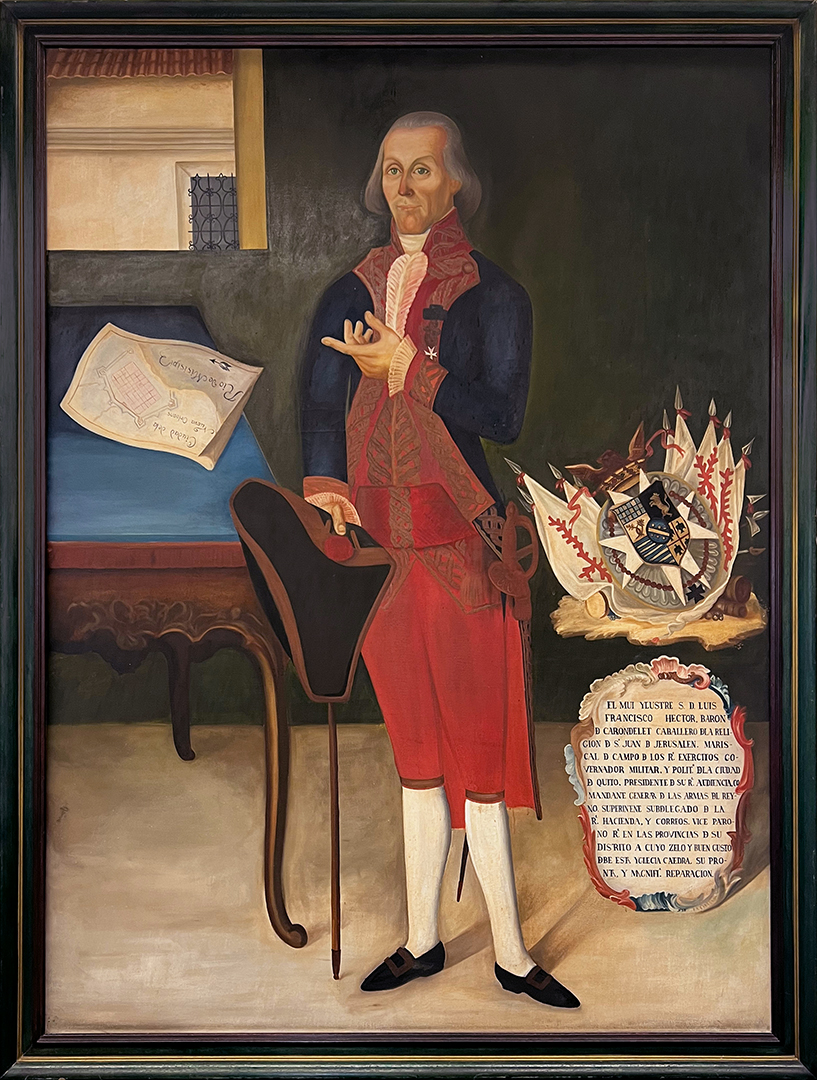 Rio do Misisipi
Ciudad de la
Nueva Orleans
EL MUI YLUSTRE S. D. LUIS
FRANCISCO HECTOR, BARON
D CARONDELET CABALLERO DLA RELI-
GION D Sn. JUAN D JERUSALEN. MARIS-
CAL D CAMPO D LOS Rs. EXERCITOS GO-
VERNADOR MILITAR, Y POLITo. DLA CIUDAD
D QUITO, PRESIDENTE D SU Rl. AUDIENCIA, CO
MANDANTE GENERAL D LAS ARMAS DL REY-
NO. SUPERINTE SUBDLEGADO D LA
Rl. HACIENDA, Y CORREOS. VICE PATRO-
NO Rl. EN LAS PROVINCIAS D SU
DISTRITO A CUYO ZELO Y BUEN GUSTO
DBE ESTA YGLECIA CAEDRA. SU PRO-
NTA, Y MAGNIFa. REPARACION.